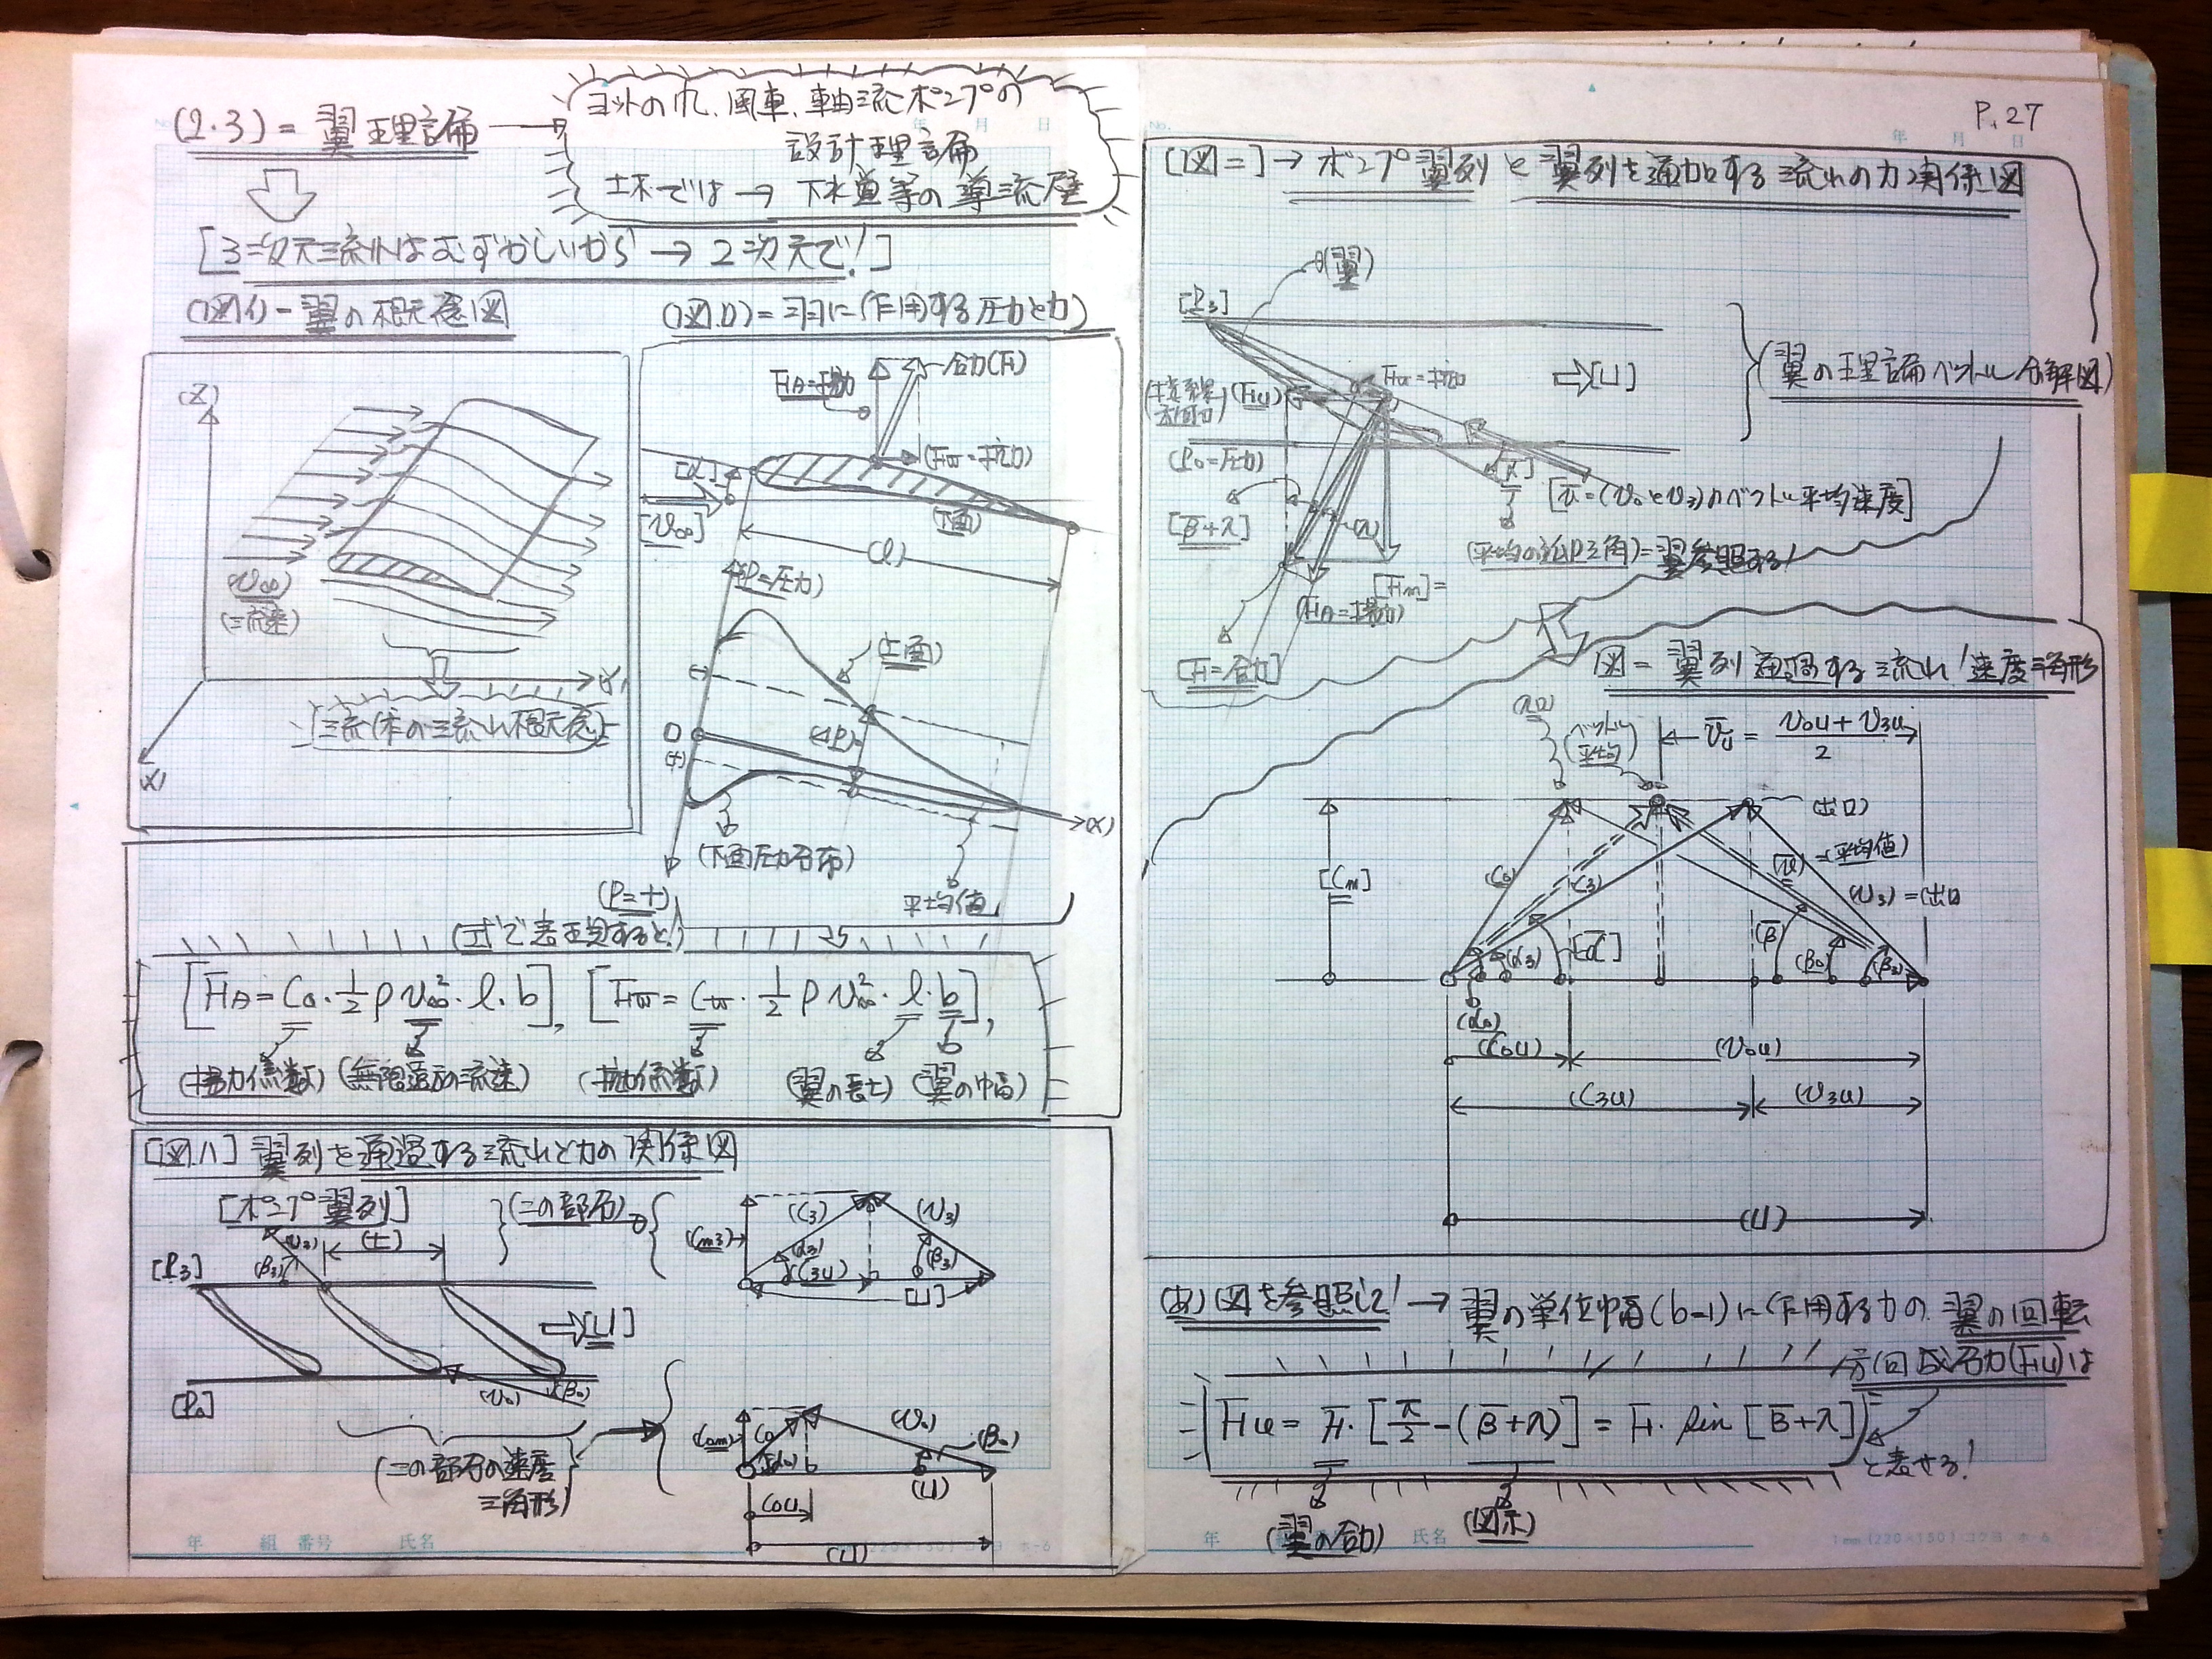 (2.3) = 翼理論
ヨットの帆、風車、軸流ポンプの
設計理論
土木では → 下水道等の導流壁
[3次元流れはむずかしいから → 2次元で!]
(図イ) - 翼の概念図
(Z)
(V∞)
(流速)
(Y)
(X)
流体の流れ概念
(図ロ) = 翼に作用する圧力と力
FA = 揚力
合力(F)
(FW = 抗力)
[α]
[V∞]
(下面)
(l)
(P=圧力)
(-)
(上面)
0
(+)
(ΔP)
(X)
(下面圧力分布)
(P=+)
平均値
(式で表現すると)
[FA = Ca · 1/2 ρ V∞² · l · b], [FW = CW · 1/2 ρ V∞² · l · b],
(揚力係数) (無限遠方の流速) (抗力係数) (翼の長さ) (翼の巾)
[図ハ] 翼列を通過する流れと力の関係図
[ポンプ翼列]
(この部分)
(V3)
(t)
(β3)
[P3]
[U]
[P0]
(V0)
(β0)
(この部分の速度
三角形)
(C3)
(V3)
(Cm3)
(α3)
(β3)
(C3u)
[U]
(C0m)
C0
(V0)
(β0)
(α0)
(U)
C0u
(U)
年 組 番号 氏名
P.27
年 月 日
[図ニ] → ポンプ翼列と翼列を通過する流れの力関係図
(翼)
[P3]
[U]
(翼の理論ベクトル分解図)
FW = 抗力
(Fu)
(P0=圧力)
[λ]
[V̄ = (V0とV3)のベクトル平均速度]
[β̄+λ]
(λ)
[Fm] =
(FA = 揚力)
[F = 合力]
図 = 翼列通過する流れ!速度三角形
(入口)
(ベクトル
平均)
V̄u = (V0u + V3u) / 2
(出口)
[Cm]
(C0)
(C3)
(V̄) = (平均値)
(V3) = 出口
(α3)
[ᾱ]
(β̄)
(β0)
(β3)
(α0)
(C0u)
(V0u)
(C3u)
(V3u)
(U)
(あ) 図を参照して! → 翼の単位巾(b=1)に作用する力の翼の回転
方向成分力(Fu)は
Fu = F · [π/2 - (β̄+λ)] = F · sin [β̄+λ]
と表せる!
(翼の合力)
(図示)
年 氏名